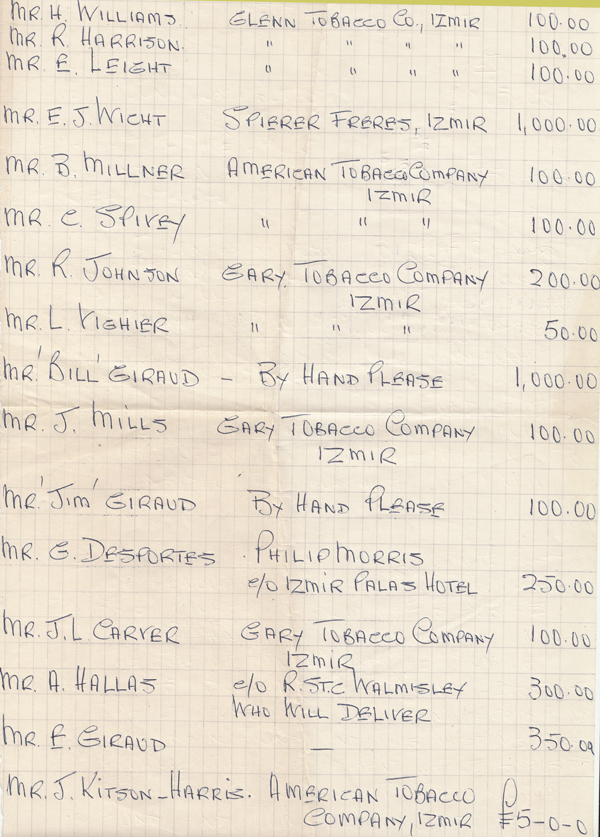 MR. H. WILLIAMS. GLENN TOBACCO CO., IZMIR 100.00
MR. R. HARRISON. " " " " 100.00
MR. E. LEIGHT " " " " 100.00
MR. E. J. WICHT SPIERER FRERES, IZMIR 1,000.00
MR. B. MILLNER AMERICAN TOBACCO COMPANY 100.00
IZMIR
MR. C. SPIVEY " " " 100.00
MR. R. JOHNSON GARY TOBACCO COMPANY 200.00
IZMIR
MR. L. VIGHIER " " " 50.00
MR 'BILL' GIRAUD – BY HAND PLEASE 1,000.00
MR. J. MILLS GARY TOBACCO COMPANY 100.00
IZMIR
MR 'JIM' GIRAUD BY HAND PLEASE 100.00
MR. G. DESPORTES . PHILIP MORRIS
c/o IZMIR PALAS HOTEL 250.00
MR. J. L CARVER GARY TOBACCO COMPANY 100.00
IZMIR
MR. A. HALLAS c/o R. ST.C WALMISLEY 300.00
WHO WILL DELIVER
MR. E. GIRAUD — 350.00
MR. J. KITSON-HARRIS. AMERICAN TOBACCO
COMPANY, IZMIR £5-0-0